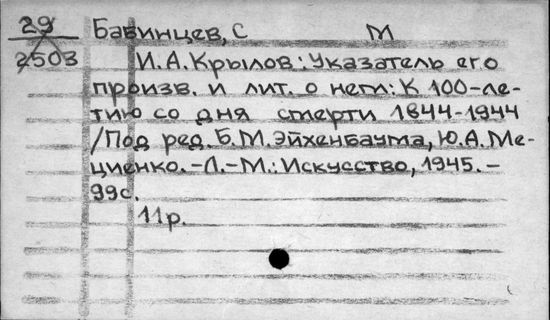 29 Бабинцев, С М
2503 И.А.Крылов: Указатель его
произв. и лит. о нем: К 100-ле-
тию со дня смерти 1844-1944
/Под ред. Б.М.Эйхенбаума, Ю.А.Ме-
циенко.-Л.-М.: Искусство, 1945.-
99с.
11р.